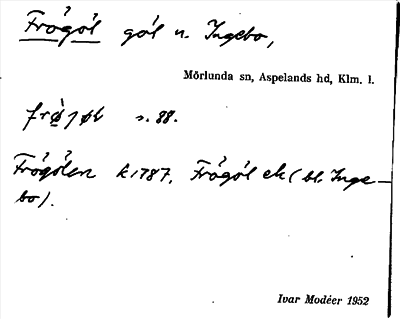 Frögöl göl n. Ingebo,
Mörlunda sn, Aspelands hd, Klm. l.
s. 88.
Frögölen k 1787. Frögöl ek (bl. Inge-
bo).
Ivar Modéer 1952